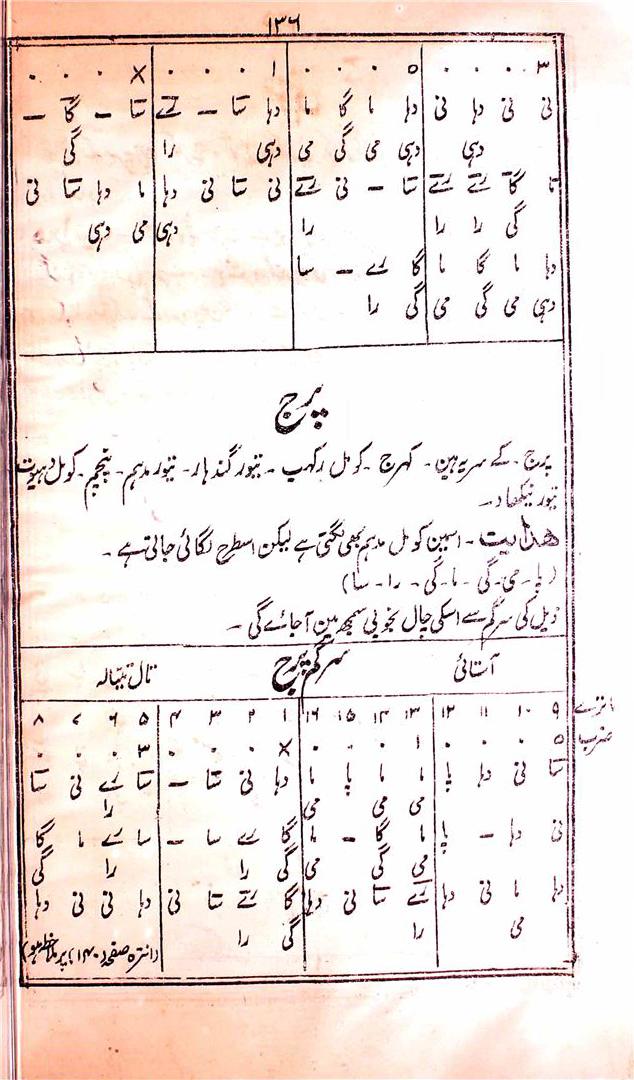 ۱۳۶
۳ . . . ٥ . . . ۱ . . . X . . .
نی نی دہا نی دہا ما گا ما دہا سا – رے سا – گا –
دہی دہی می گی می دہی را گی
سا گا رے رے سا – نی رے نی سا نی دہا ما دہا سا نی
گی را را را دہی می دہی
دہا ما گا ما گا رے – سا
دہی می گی می گی را
پرج
پرج ۔ کے سر یہ ہین ۔ کہرج ۔ کومل رکہب ۔ تیور گندہار ۔ تیور مدہم ۔ پنچم ۔ کومل دہیوت
تیور نیکھاد ۔
ھدایت ۔ اسمین کومل مدہم بھی لگتی ہے لیکن اسطرح لگائی جاتی ہے ۔
(پا ۔ می ۔ گی ۔ ما ۔ گی ۔ را ۔ سا)
ذیل کی سرگم سے اسکی چال بخوبی سمجھ مین آ جائے گی ۔
آستائی سرگم پرج تال تیتالہ
ماترے ۹ ۱۰ ۱۱ ۱۲ ۱۳ ۱۴ ۱۵ ۱۶ ۱ ۲ ۳ ۴ ۵ ۶ ۷ ۸
ضرب ٥ . . . ۱ . . . X . . . ۳ . . .
سا نی دہا پا ما ما پا ما دہا نی سا – سا رے نی سا
می می می را
نی دہا – پا ما گا – ما گا رے سا – سا رے ما گا
می گی می گی را را گی
دہا ما نی دہا رے سا نی دہا گا رے سا نی دہا نی نی دہا
می را گی را (انترہ صفحہ (۱۴۰) پر ملاحظہ ہو)